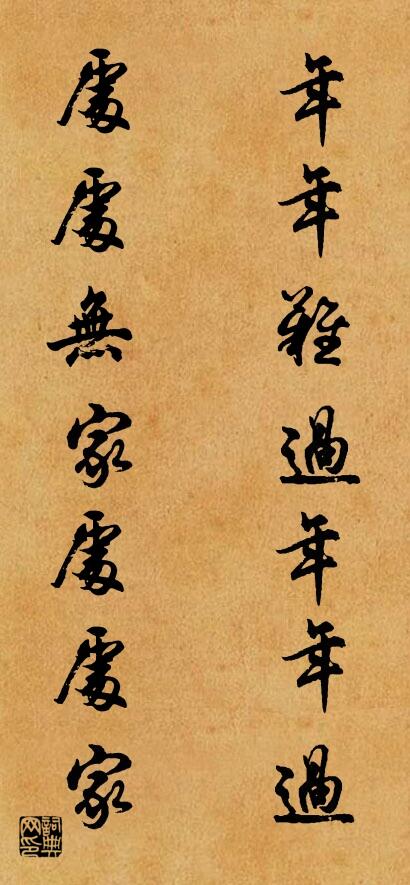 年年難過年年過
處處無家處處家
詞典网印